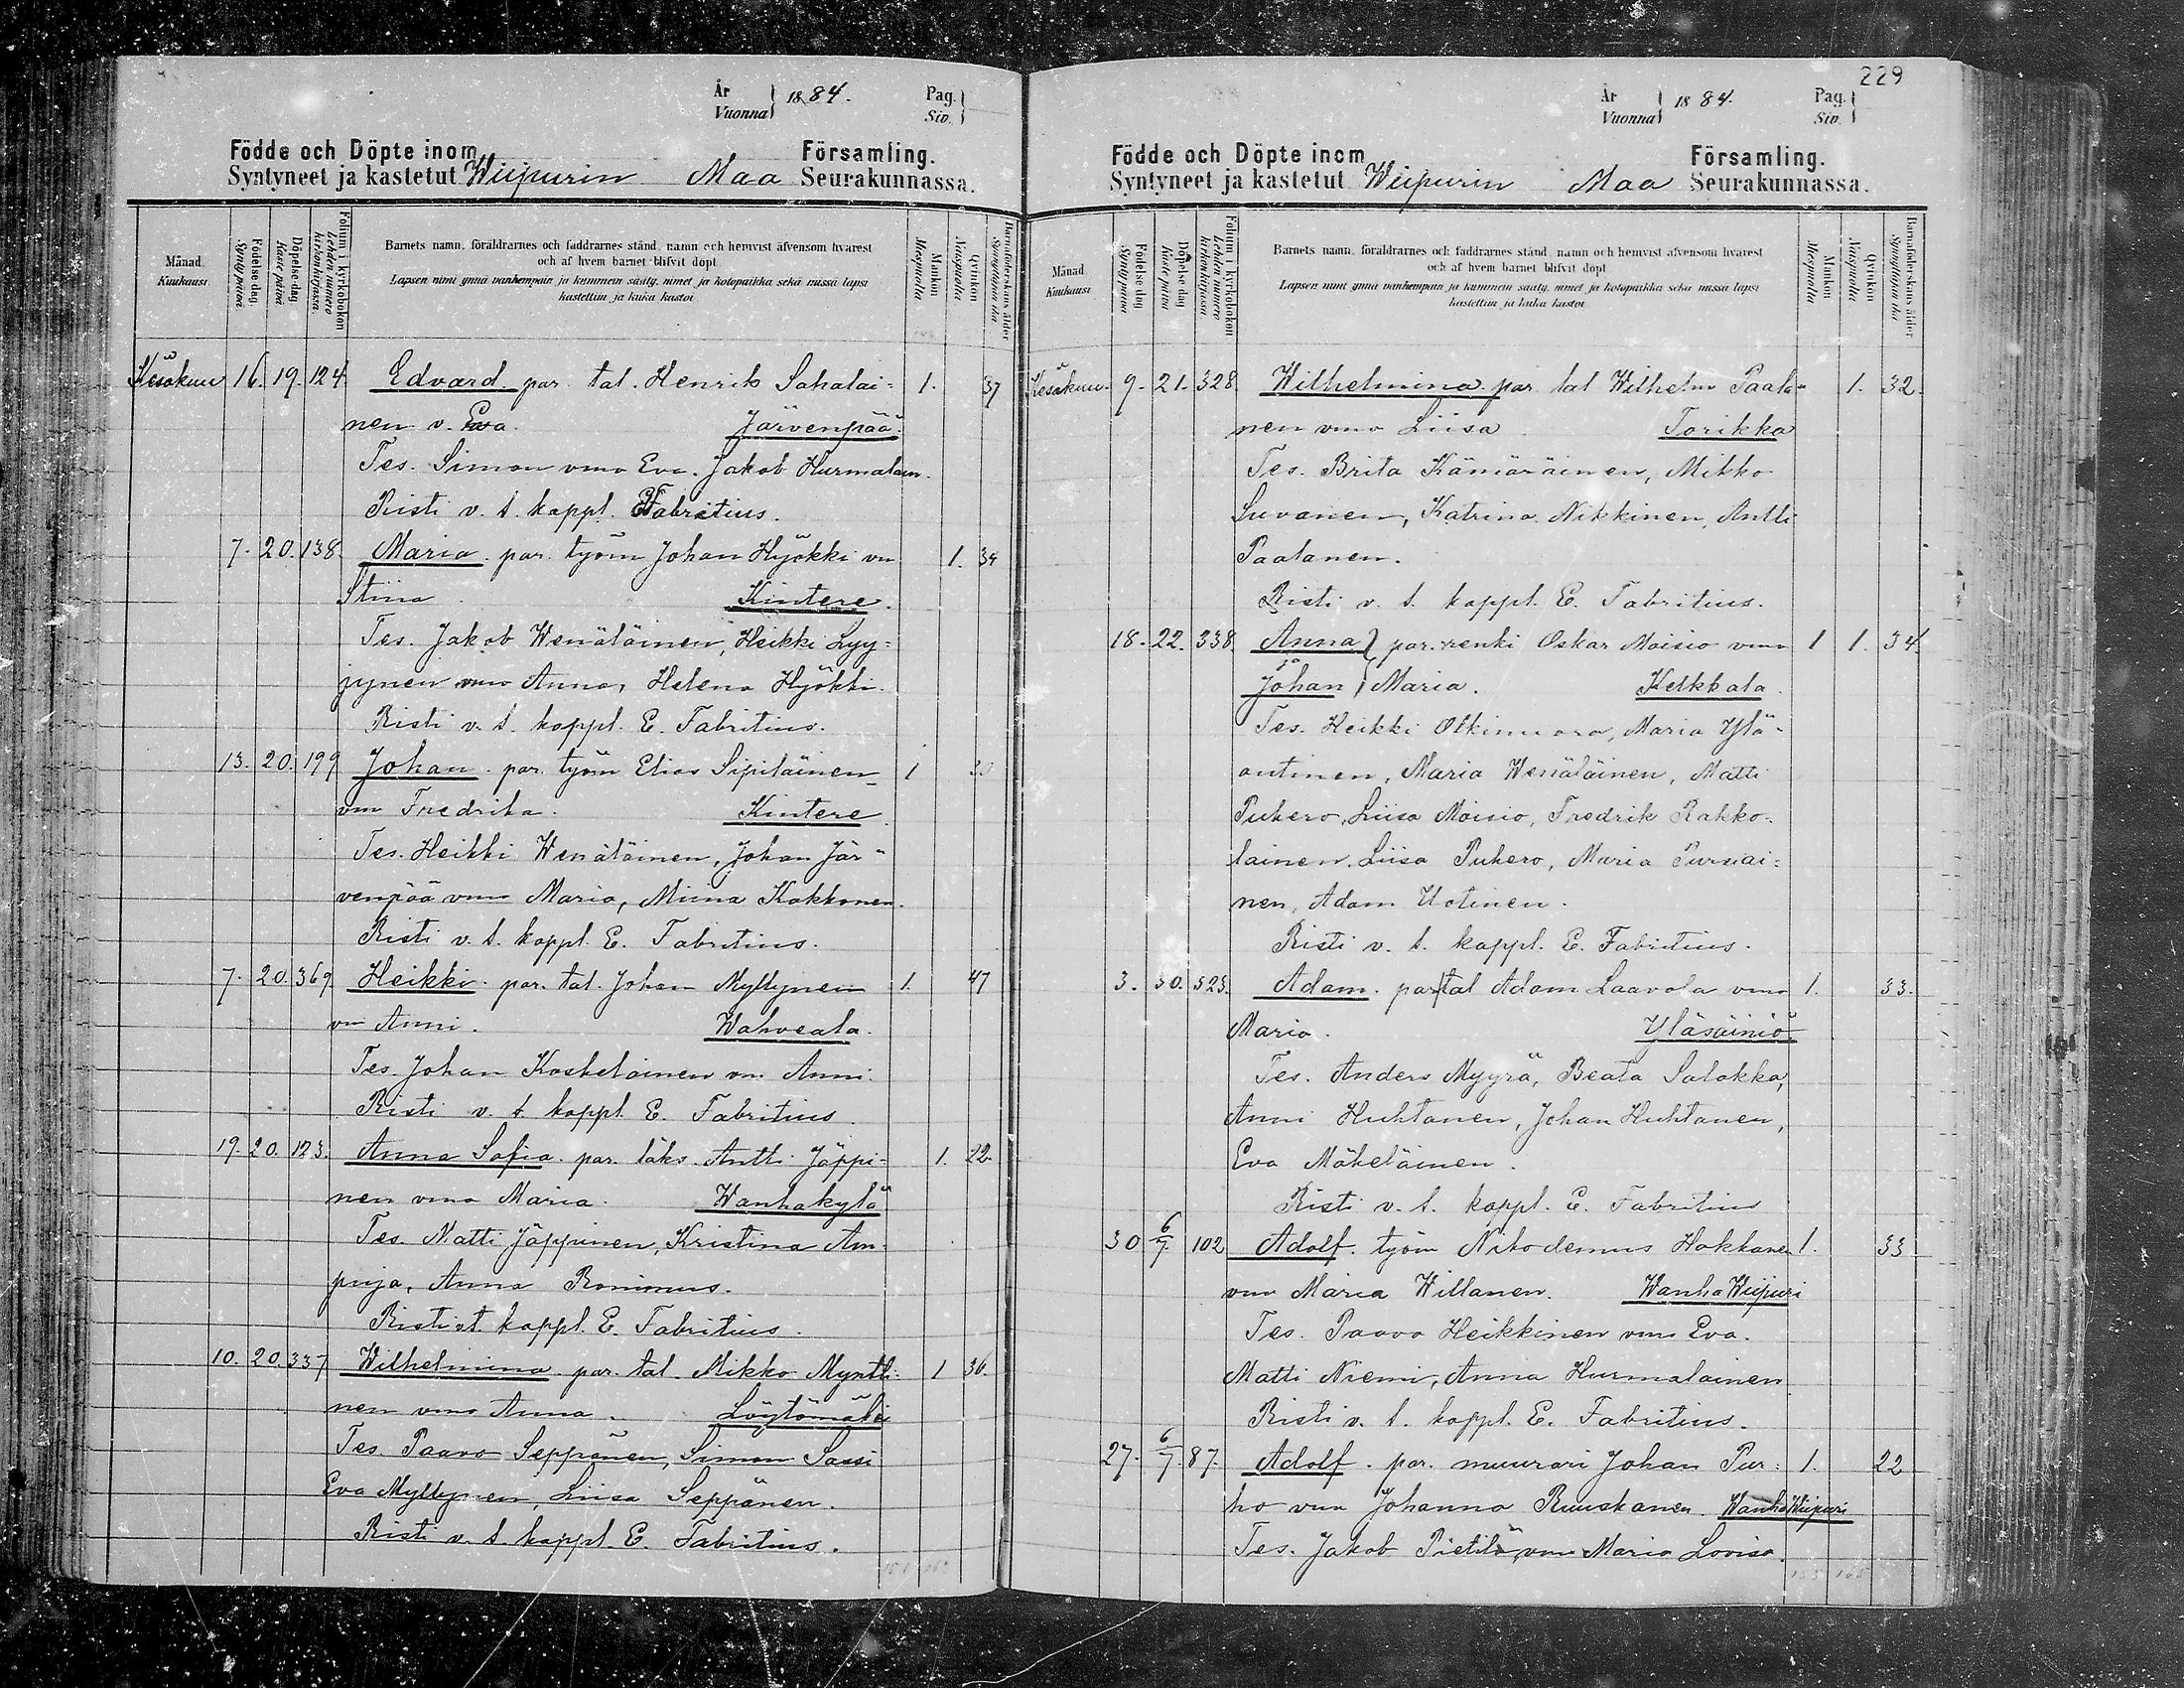 År
Vuonna } 1884.
Pag.
Siv. }
Födde och Döpte inom Församling.
Syntyneet ja kastetut Wiipurin Maa Seurakunnassa.
Månad
Kuukausi
Födelsedag
Syntypäivä
Döpelsedag
Kastepäivä
Folium i kyrkoboken
Lehden numero kirkonkirjassa.
Barnets namn, föräldrarnes och faddrarnes stånd, namn och hemvist äfvensom hvarest
och af hvem barnet blifvit döpt
Lapsen nimi ynnä vanhempain ja kummein sääty, nimet ja kotopaikka sekä missä lapsi
kastettiin ja kuka kastoi
Mankön
Miespuolia
Qvinkön
Naispuolia
Barnaföderskans ålder
Synnyttäjän ikä
Kesäkuu 16. 19. 124 Edvard par. tal. Henrik Sahalai- 1. 37
nen v. Eva. Järvenpää.
Tes. Simon vmo Eva. Jakob Hurmalain.
Risti v. t. kappl. E Fabritius.
7. 20. 138. Maria par. työm Johan Hyökki vm 1. 34
Stiina Kintere.
Tes. Jakob Wenäläinen, Heikki Lyy-
jynen vmo Anna, Helena Hyökki.
Risti v. t. kappl. E. Fabritius.
13. 20. 199 Johan par. työm Elias Sipiläinen 1 30
vm Fredrika. Kintere
Tes. Heikki Wenäläinen, Johan Jär-
venpää vmo Maria, Miina Kakkonen.
Risti v. t. kappl. E. Fabritius.
7. 20. 369 Heikki. par. tal. Johan Myllynen 1. 47
vm Anni. Wahveala.
Tes. Johan Koskelainen vm Anni.
Risti v. t. kappl. E. Fabritius.
19. 20. 123. Anna Sofia par. läks. Antti Jäppi- 1. 22.
nen vmo Maria. Wanhakylä
Tes. Matti Jäppinen, Kristina Am-
puja, Anna Ronimus.
Risti vt. kappl. E. Fabritius.
10. 20. 337 Wilhelmina par. tal. Mikko Myntti- 1 36.
nen vmo Anna Löytömäki
Tes. Paavo Seppänen, Simon Sassi
Eva Myllynen, Liisa Seppänen.
Risti v. t. kappl. E. Fabritius.
229
År
Vuonna } 1884.
Pag.
Siv. }
Födde och Döpte inom Församling.
Syntyneet ja kastetut Wiipurin Maa Seurakunnassa.
Månad
Kuukausi
Födelsedag
Syntypäivä
Döpelsedag
Kastepäivä
Folium i kyrkoboken
Lehden numero kirkonkirjassa
Barnets namn, föräldrarnes och faddrarnes stånd, namn och hemvist äfvensom hvarest
och af hvem barnet blifvit döpt
Lapsen nimi ynnä vanhempain ja kummein sääty, nimet ja kotopaikka sekä missä lapsi
kastettiin ja kuka kastoi
Mankön
Miespuolia
Qvinkön
Naispuolia
Barnaföderskans ålder
Synnyttäjän ikä
Kesäkuu. 9. 21. 328. Wilhelmina par. tal Wilhelm Paala- 1. 32.
nen vmo Liisa Torikka
Tes. Brita Kämäräinen, Mikko
Suvanen, Katrina Nikkinen, Antti
Paalanen.
Risti v. t. kappl. E. Fabritius.
18. 22. 338. Anna } par. renki Oskar Moisio vmo 1 1. 34
ja
Johan } Maria. Kelkkala.
Tes. Heikki Olkinuora, Maria Ylä-
outinen, Maria Wenäläinen, Matti
Puhero, Liisa Moisio, Fredrik Rakko-
lainen, Liisa Puhero, Maria Pursiai-
nen, Adam Uotinen.
Risti v. t. kappl. E. Fabritius.
3. 30. 523. Adam. par tal Adam Laavola vmo 1. 33.
Maria. Yläsäiniö
Tes. Anders Myyrä, Beata Salokka,
Anni Huhtanen, Johan Huhtanen,
Eva Mäkeläinen.
Risti v. t. kappl. E. Fabritius
30 6/7. 102 Adolf. työm Nikodemus Hakkanen 1. 33
vm Maria Willanen. Wanha Wiipuri
Tes. Paavo Heikkinen vmo Eva.
Matti Niemi, Anna Hurmalainen.
Risti v. t. kappl. E. Fabritius.
27. 6/7. 87. Adolf. par. muurari Johan Pur- 1. 22
ho vm Johanna Ruuskanen. Wanha Wiipuri
Tes. Jakob Pietilä, vm Maria Lovisa.